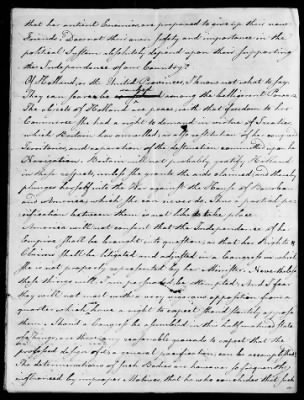 that her antient Enemies are prepared to give up their new
Friends. Does not their own safety and importance in the
political System absolutely depend upon their supporting
the Independence of our Country?
Of Holland, or the United Provinces, I know not what to say.
They have not be among the belligerent Powers.
The object of Holland is peace, with that freedom to her
Commerce She had a right to demand in virtue of Treaties,
which Britain has annulled, as also restitution of her conquered
Territories, and reparation of the destruction committed upon her
Navigation. Britain will not probably gratify Holland
in these respects, unless she grants the aids claimed, and thereby
plunges herself into the War against the House of Bourbon
and America, which she can never do. Thus a partial pa-
cification between them is not like to take place.
America will not consent that the Independence of her
Empire shall be brought into question, or that her Rights &
Claims shall be litigated and adjusted in a Congress in which
She is not properly represented by her Minister. Nevertheless
these things will I am persuaded be attempted. And I fear
they will not meet with a very vigorous opposition from a
quarter, which we have a right to expect should steadily oppose
them. Should a Congress be assembled in the half matured State
of Things, are there any reasonable grounds to expect that the
professed design of it, a general pacification, can be accomplished?
The determinations of such Bodies are however so frequently
influenced by improper Motives, that he who concludes that such